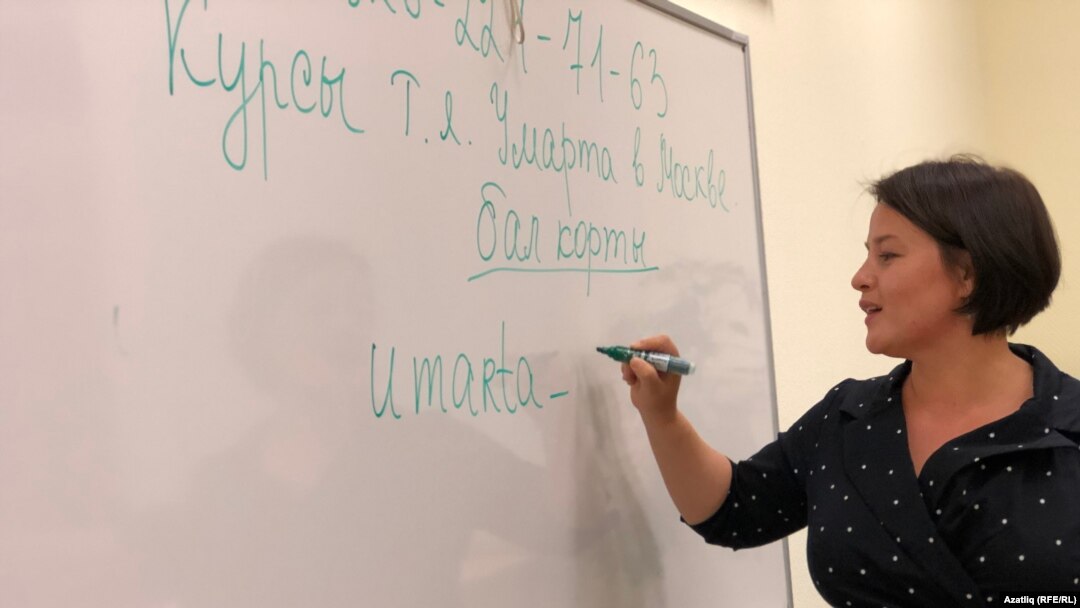 22 -71-63
Курсы т.я. Умарта в Москве.
бал корты
umarta-
Azatliq (RFE/RL)